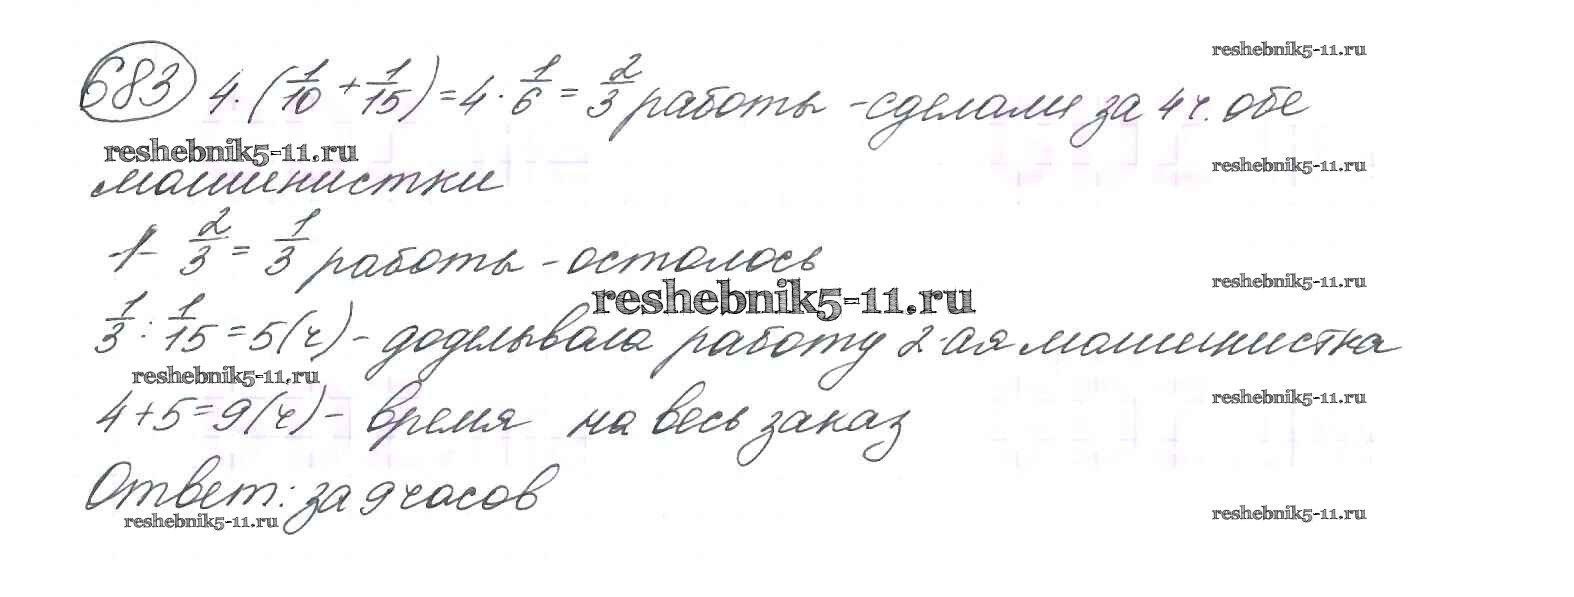 reshebnik5-11.ru
683 4·(1/10 + 1/15) = 4 · 1/6 = 2/3 работы - сделали за 4 ч. обе
reshebnik5-11.ru
reshebnik5-11.ru
машинистки
1 - 2/3 = 1/3 работы - осталось
reshebnik5-11.ru
reshebnik5-11.ru
1/3 : 1/15 = 5(ч) - доделывала работу 2-ая машинистка
reshebnik5-11.ru
reshebnik5-11.ru
4+5=9(ч) - время на весь заказ
Ответ: за 9 часов
reshebnik5-11.ru
reshebnik5-11.ru